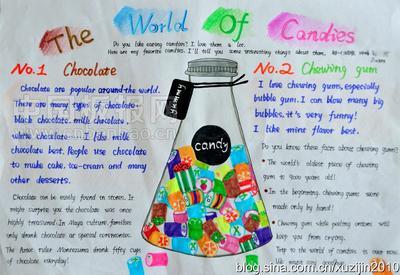 The World Of Candies
Do you like eating candies? I love them a lot.
Here are my favorite candies. I'll tell you some interesting things about them.
No.1 Chocolate
Chocolate are popular around the world.
There are many types of chocolate -
black chocolate, milk chocolate,
white chocolate I like milk
chocolate best. People use chocolate
to make cake, ice-cream and many
other desserts.
Chocolate can be easily found in stores. It
might surprise you the chocolate was once
highly treasured. In Maya culture, families
only drank chocolate at special ceremonies.
The Aztec ruler Montezuma drank fifty cups
of chocolate everyday!
yummy
candy
No.2 Chewing gum
I love chewing gum, especially
bubble gum. I can blow many big
bubbles, it's very funny!
I like mint flavor best.
Do you know these facts about chewing gum?
The world's oldest piece of chewing
gum is 9000 years old!
In the beginning, chewing gums were
made only by hand!
Chewing gum while peeling onions will
keep you from crying.
blog.sina.com.cn/xuzijin2010